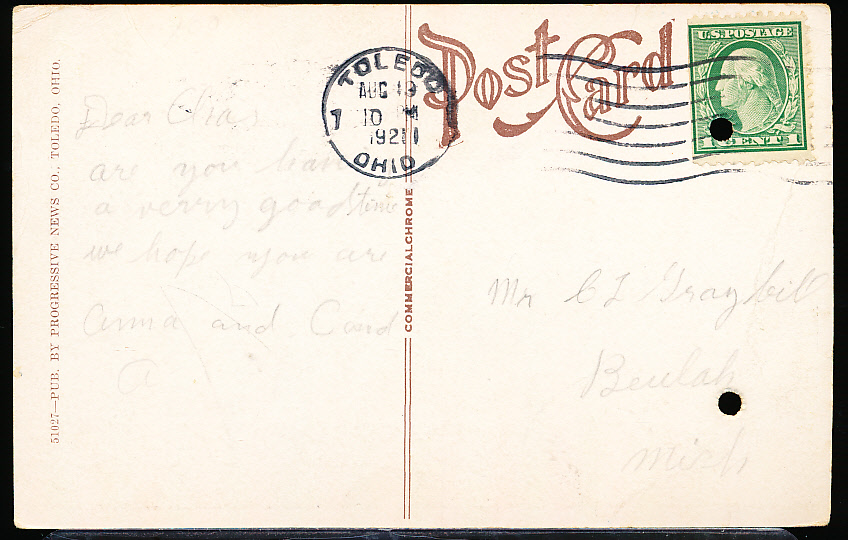 51027—PUB. BY PROGRESSIVE NEWS CO., TOLEDO, OHIO.
Dear Chas
are you having
a verry good time
we hope you are
Anna and
A
COMMERCIALCHROME
Post Card
TOLEDO
AUG 19
7 10 PM
1921
OHIO
U.S. POSTAGE
1 CENT 1
Mr C L Graybill
Beulah
Mich